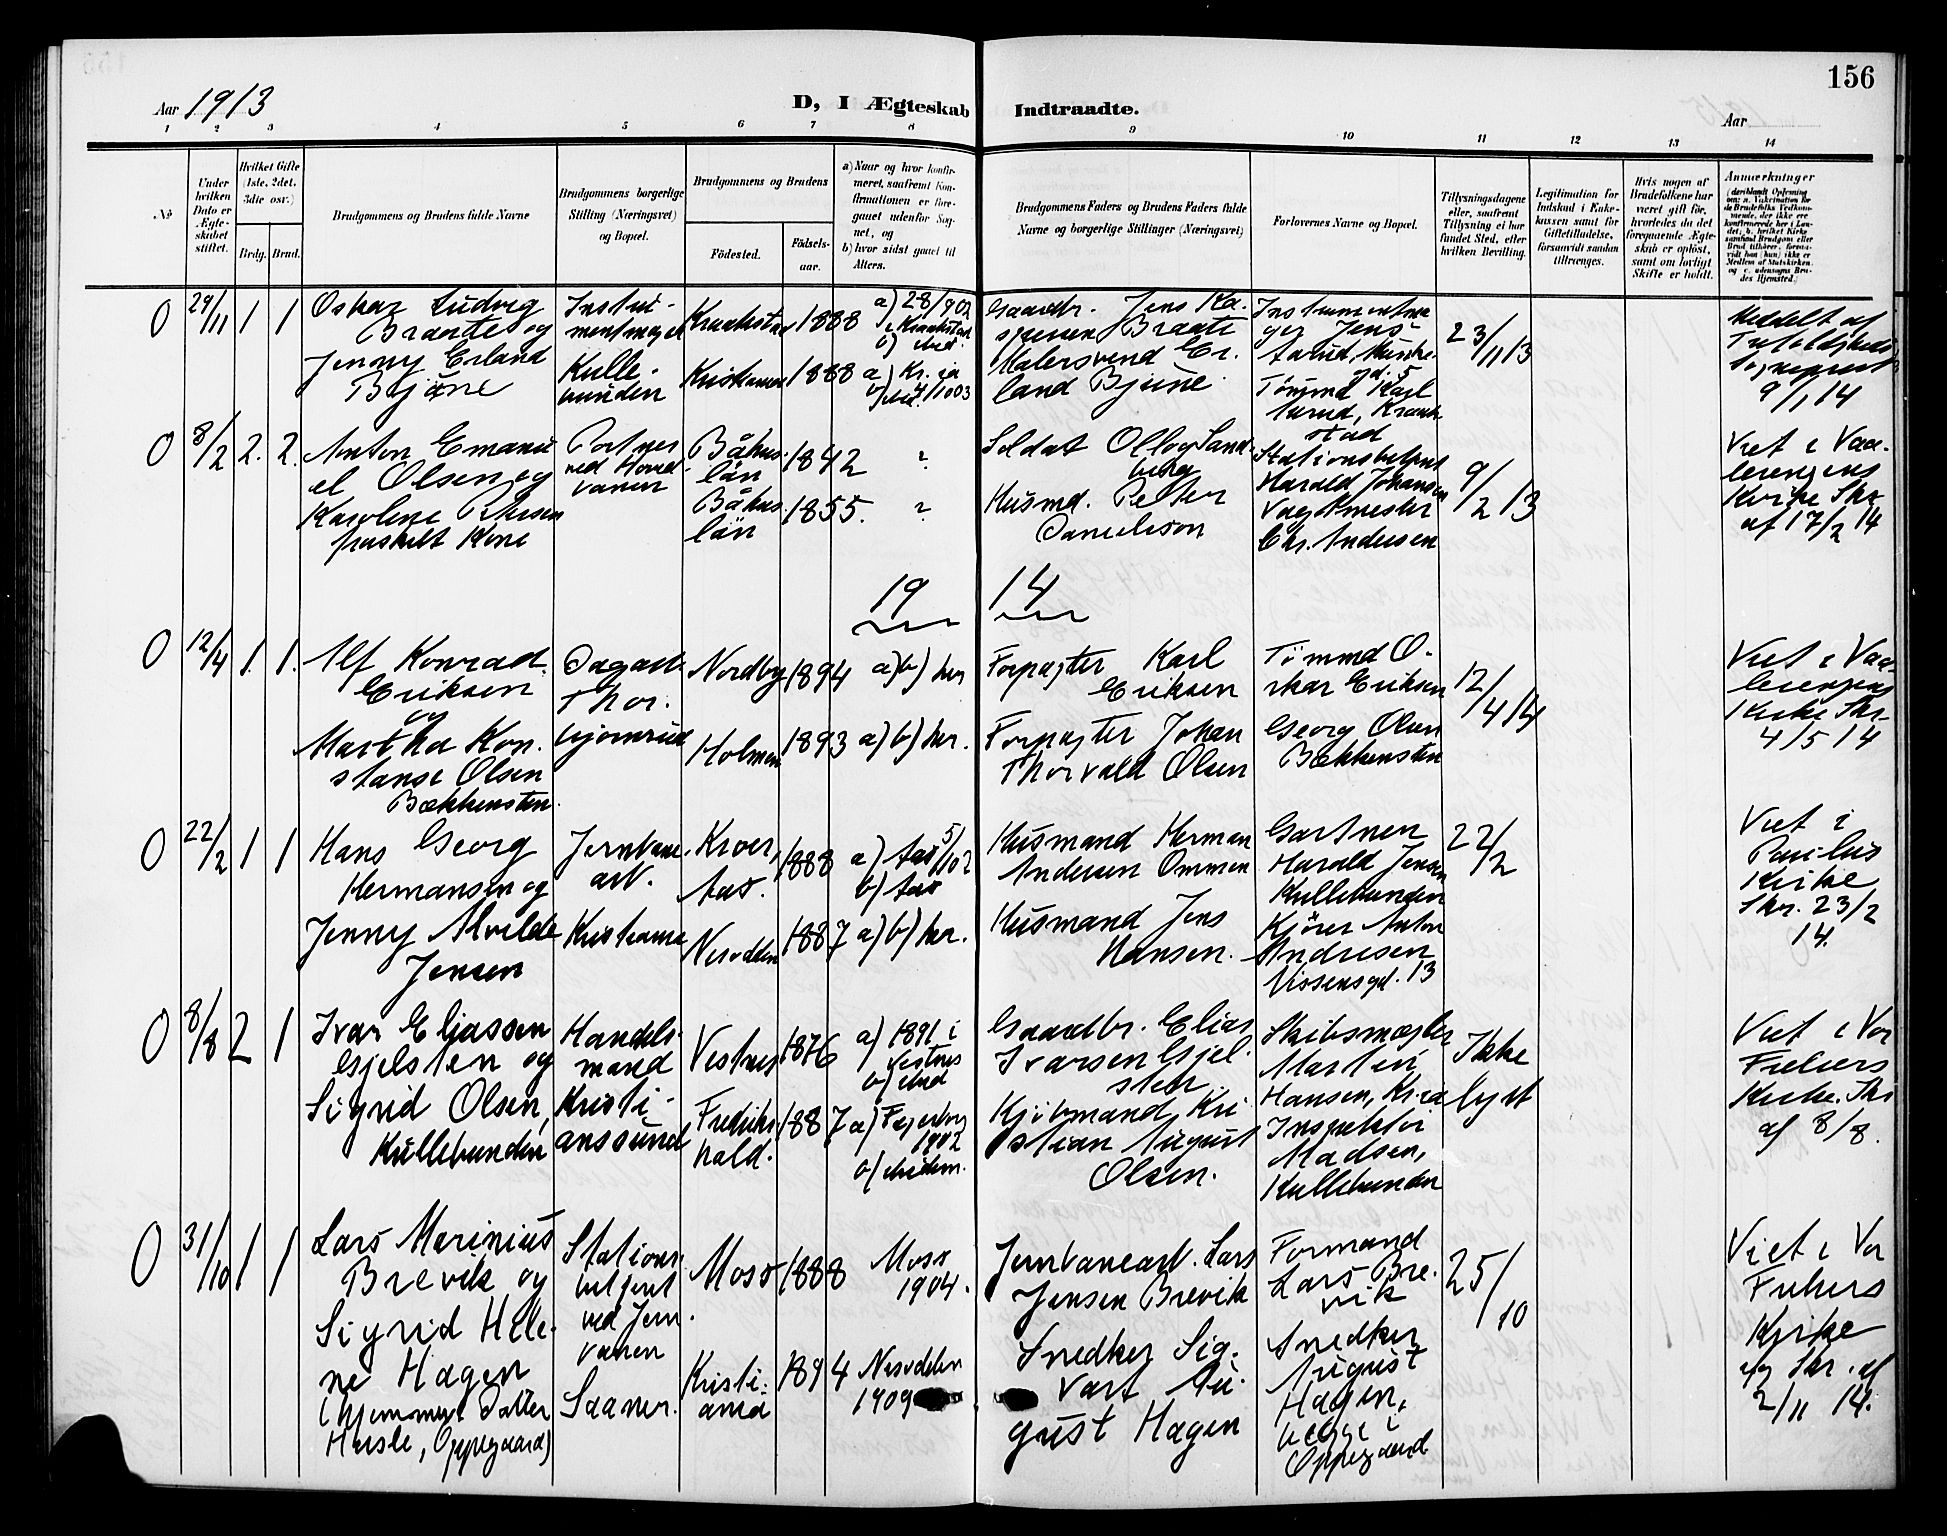 156
Aar 1913
D, I Ægteskab Indtraadte.
Aar
1 2 3 4 5 6 7 8 9 10 11 12 13 14
No
Under hvilken Dato er Ægteskabet stiftet.
Hvilket Gifte (1ste, 2det, 3die osv.)
Brdg. Brud.
Brudgommens og Brudens fulde Navne
Brudgommens borgerlige Stilling (Næringsvei) og Bopæl.
Brudgommens og Brudens
Fødested.
Fødselsaar.
a) Naar og hvor konfirmeret, saafremt Konfirmationen er foregaaet udenfor Sognet, og
b) hvor sidst gaaet til Alters.
Brudgommens Faders og Brudens Faders fulde Navne og borgerlige Stillinger (Næringsvei)
Forlovernes Navne og Bopæl.
Tillysningsdagene eller, saafremt Tillysning ei har fundet Sted, efter hvilken Bevilling.
Legitimation for Indskud i Enkekassen samt for Giftetilladelse, forsaavidt saadan tiltrænges.
Hvis nogen af Brudefolkene har været gift før, hvorledes da det foregaaende Ægteskab er opløst, samt om lovligt Skifte er holdt.
Anmærkninger
0 29/11 1 1
Oskar Ludvig
Braate og
Jenny Erland
Bjüne
Instru-
mentmager
Kulle-
bunden
Kraakstad 1888
a) 28/9 02
i Kraakstad
b) ibid.
Kristiania 1888
Gaardbr. Jens Ka-
spersen Braate
Malersvend Er-
land Bjüne
Instrumentma-
ger Jens
Tømmd Karl
Aarud, Kraak-
stad
23/11 13
Meddelt af
9/1 14
0 8/2 2. 2.
Anton Emanu
el Olsen og
Karoline Petersen
fraskilt Kone
Portner
ved Hoved-
banen
Båhus-
län 1842 ?
Båhus-
län 1855. ?
Soldat Ollog Sand-
berg
Husmd. Petter
Danielsson
Stationsbetjent
Harald Johansen
Vagtmester
Chr. Andersen
9/2 13
Viet i Vaa-
lerengens
Kirke Skr.
af 17/2 14
19 14
0 12/4 1. 1.
Alf Konrad
Eriksen
og
Martha Kon-
stanse Olsen
Bækkensten
Dagarb.
Thor-
bjørnrud
Nordby 1894 a) b) her
Holmen 1893 a) b) her.
Forpagter Karl
Eriksen
Forpagter Johan
Thorvald Olsen
Tømmd O-
skar Eriksen
Georg Olsen
Bækkensten
12/4 14
Viet i Vaa-
lerengens
Kirke Skr.
4/5 14
0 22/2 1 1
Hans Georg
Hermansen og
Jenny Alvilde
Jensen
Jernbane-
arb.
Kristiania
Kroer,
Aas. 1888
a) Aas 5/10 02
b) Aas
Nesodden 1887 a) b) her.
Husmand Herman
Andersen Ommen
Husmand Jens
Hansen.
Gartner
Harald Jensen
Kullebunden
Kjører Anton
Andresen
Nissensgd. 13
22/2
Viet i
Paulus
Kirke
Skr. 23/2
14.
0 8/8 2 1
Ivar Eliassen
Gjelsten og
Sigrid Olsen,
Kullebunden
Handels-
mand
Kristi-
anssund
Vestnes 1876
a) 1891 i
Vestnes
b) ibid
Fredriks-
hald. 1887
a) Fagerborg
1902
b) ibidem.
Gaardbr. Elias
Ivarsen Gjel-
sten
Kjøbmand Kri-
stian August
Olsen.
Skibsmægler
Martin
Hansen, Kr.ia
Inspektør
Madsen,
Kullebunden
Ikke
lyst
Viet i Vor
Frelsers
Kirke. Skr.
af 8/8.
0 31/10 1 1
Lars Marinius
Brevik og
Sigrid Hele-
ne Hagen
(hjemmev. Datter
Husle, Oppegaard)
Stations-
betjent
ved Jern-
banen
Saaner.
Moss 1888
Moss
1904.
Kristi-
ania 1894
Nesodden
1909
Jernbanearb. Lars
Jensen Brevik
Snedker Sig-
vart Au-
gust Hagen
Formand
Lars Bre-
vik
Snedker
August
Hagen,
begge i
Oppegaard
25/10
Viet i Vor
Frelsers
Kirke
og Skr. af
2/11 14.